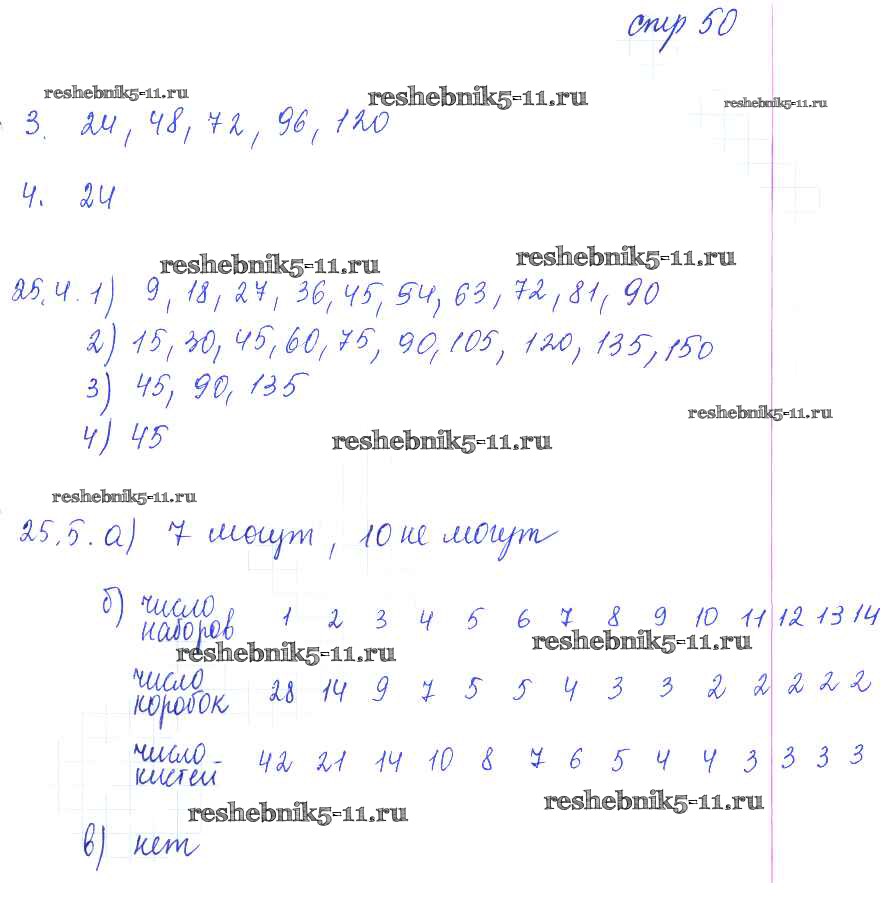 стр 50
reshebnik5-11.ru reshebnik5-11.ru reshebnik5-11.ru
3. 24, 48, 72, 96, 120
4. 24
reshebnik5-11.ru reshebnik5-11.ru
25.4. 1) 9, 18, 27, 36, 45, 54, 63, 72, 81, 90
2) 15, 30, 45, 60, 75, 90, 105, 120, 135, 150
3) 45, 90, 135
reshebnik5-11.ru
4) 45 reshebnik5-11.ru
reshebnik5-11.ru
25.5. а) 7 могут, 10 не могут
б) число
наборов 1 2 3 4 5 6 7 8 9 10 11 12 13 14
reshebnik5-11.ru reshebnik5-11.ru
число
коробок 28 14 9 7 5 5 4 3 3 2 2 2 2 2
число
кистей 42 21 14 10 8 7 6 5 4 4 3 3 3 3
reshebnik5-11.ru reshebnik5-11.ru
в) нет